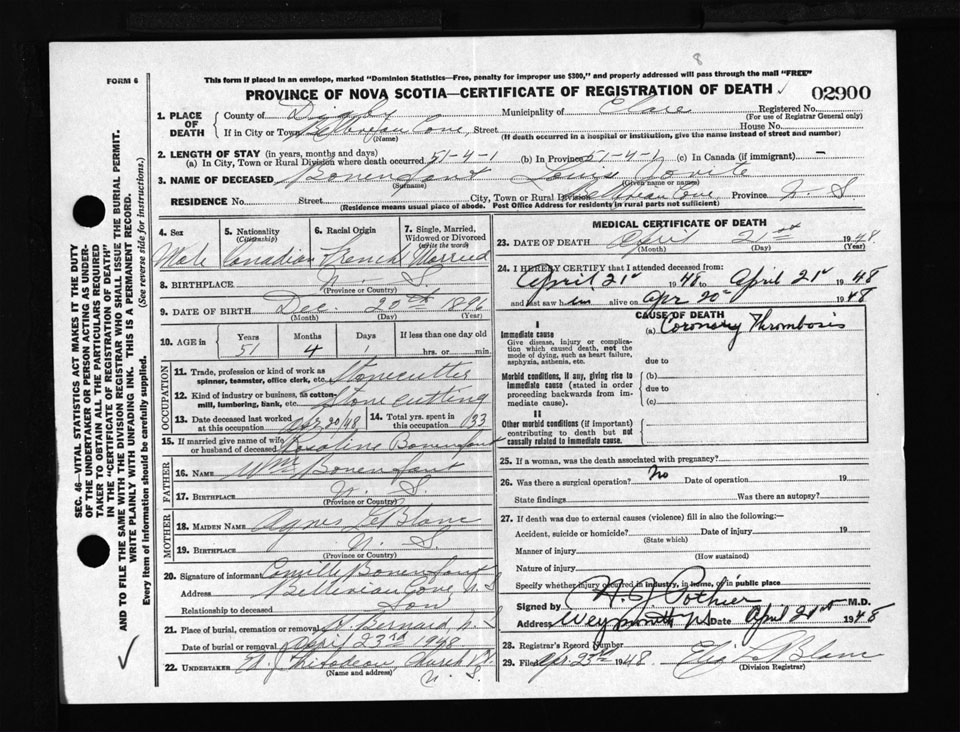 FORM 6
8
This form if placed in an envelope, marked "Dominion Statistics—Free, penalty for improper use $300," and properly addressed will pass through the mail "FREE"
PROVINCE OF NOVA SCOTIA—CERTIFICATE OF REGISTRATION OF DEATH ✓ 02900
1. PLACE OF DEATH County of Digby Municipality of Clare Registered No.
(For use of Registrar General only)
If in City or Town Belliveau Cove, Street House No.
(Name) (If death occurred in a hospital or institution, give the name instead of street and number)
2. LENGTH OF STAY (in years, months and days)
(a) In City, Town or Rural Division where death occurred 51-4-1 (b) In Province 51-4-1 (c) In Canada (if immigrant) —
3. NAME OF DECEASED Bonenfant Louis
(Surname) (Given name or names)
RESIDENCE No. Street City, Town or Rural Division Belliveau Cove Province N. S
(Residence means usual place of abode. Post Office Address for residents in rural parts not sufficient)
4. Sex 5. Nationality (Citizenship) 6. Racial Origin 7. Single, Married, Widowed or Divorced (write the word)
Male Canadian French Married
8. BIRTHPLACE N. S.
(Province or Country)
9. DATE OF BIRTH Dec. 20th 1896
(Month) (Day) (Year)
10. AGE in Years 51 Months 4 Days If less than one day old hrs. or min.
OCCUPATION
11. Trade, profession or kind of work as spinner, teamster, office clerk, etc. Stonecutter
12. Kind of industry or business, as cotton-mill, lumbering, bank, etc. Stone cutting
13. Date deceased last worked at this occupation Apr 20/48 14. Total yrs. spent in this occupation 33
15. If married give name of wife or husband of deceased Rosaline Bonenfant
FATHER
16. NAME Wm Bonenfant
17. BIRTHPLACE N. S.
(Province or Country)
MOTHER
18. MAIDEN NAME Agnes LeBlanc
19. BIRTHPLACE N. S.
(Province or Country)
20. Signature of informant Camille Bonenfant
Address Belliveau Cove N S
Relationship to deceased Son
21. Place of burial, cremation or removal St. Bernard, N. S
Date of burial or removal April 23rd 1948
22. UNDERTAKER Ed. J. Thibodeau, Church Pt.
(Name and address) N. S.
MEDICAL CERTIFICATE OF DEATH
23. DATE OF DEATH April 21st 1948
(Month) (Day) (Year)
24. I HEREBY CERTIFY that I attended deceased from:
April 21st 1948 to April 21st 1948
and last saw him alive on Apr 20th 1948
CAUSE OF DEATH
I
Immediate cause (a) Coronary Thrombosis
Give disease, injury or complication which caused death, not the mode of dying, such as heart failure, asphyxia, asthenia, etc.
due to
Morbid conditions, if any, giving rise to immediate cause (stated in order proceeding backwards from immediate cause).
(b)
due to
(c)
II
Other morbid conditions (if important) contributing to death but not causally related to immediate cause.
25. If a woman, was the death associated with pregnancy?
26. Was there a surgical operation? No Date of operation 19
State findings Was there an autopsy?
27. If death was due to external causes (violence) fill in also the following:—
Accident, suicide or homicide? Date of injury 19
(State which)
Manner of injury
(How sustained)
Nature of injury
Specify whether injury occurred in industry, in home, or in public place
Signed by Pothier M.D.
Address Weymouth NS Date April 21st 1948
28. Registrar's Record Number
29. Filed Apr 23rd 1948 LeBlanc
(Division Registrar)
SEC. 46—VITAL STATISTICS ACT MAKES IT THE DUTY
OF THE UNDERTAKER OR PERSON ACTING AS UNDER-
TAKER TO OBTAIN ALL THE PARTICULARS REQUIRED
IN THE "CERTIFICATE OF REGISTRATION OF DEATH"
AND TO FILE THE SAME WITH THE DIVISION REGISTRAR WHO SHALL ISSUE THE BURIAL PERMIT.
WRITE PLAINLY WITH UNFADING INK. THIS IS A PERMANENT RECORD.
Every item of Information should be carefully supplied. (See reverse side for instructions.)